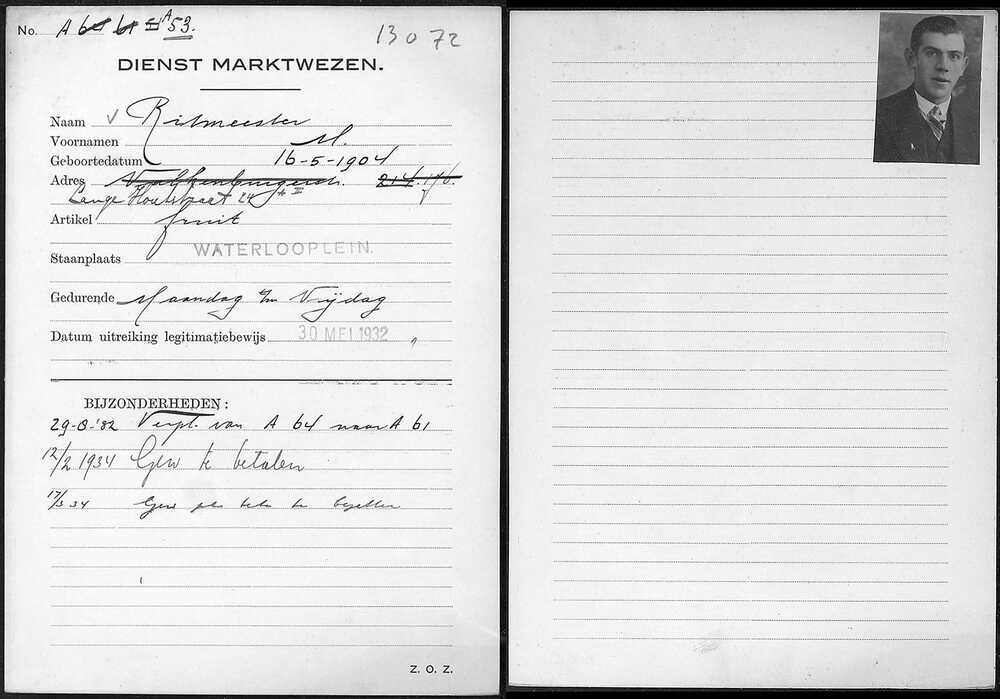 No. A 64 61 51 A 53.
13072
DIENST MARKTWEZEN.
Naam Ritmeester
Voornamen M.
Geboortedatum 16-5-1904
Adres Valkenburgerstr. 214
Lange Houtstraat 24 II
Artikel fruit
Staanplaats WATERLOOPLEIN.
Gedurende Maandag t/m Vrijdag
Datum uitreiking legitimatiebewijs 30 MEI 1932 "
BIJZONDERHEDEN:
29-8-'32 Verpl. van A 64 naar A 61
12/2 1934 Gew te betalen
17/3 34 Gew te
Z. O. Z.